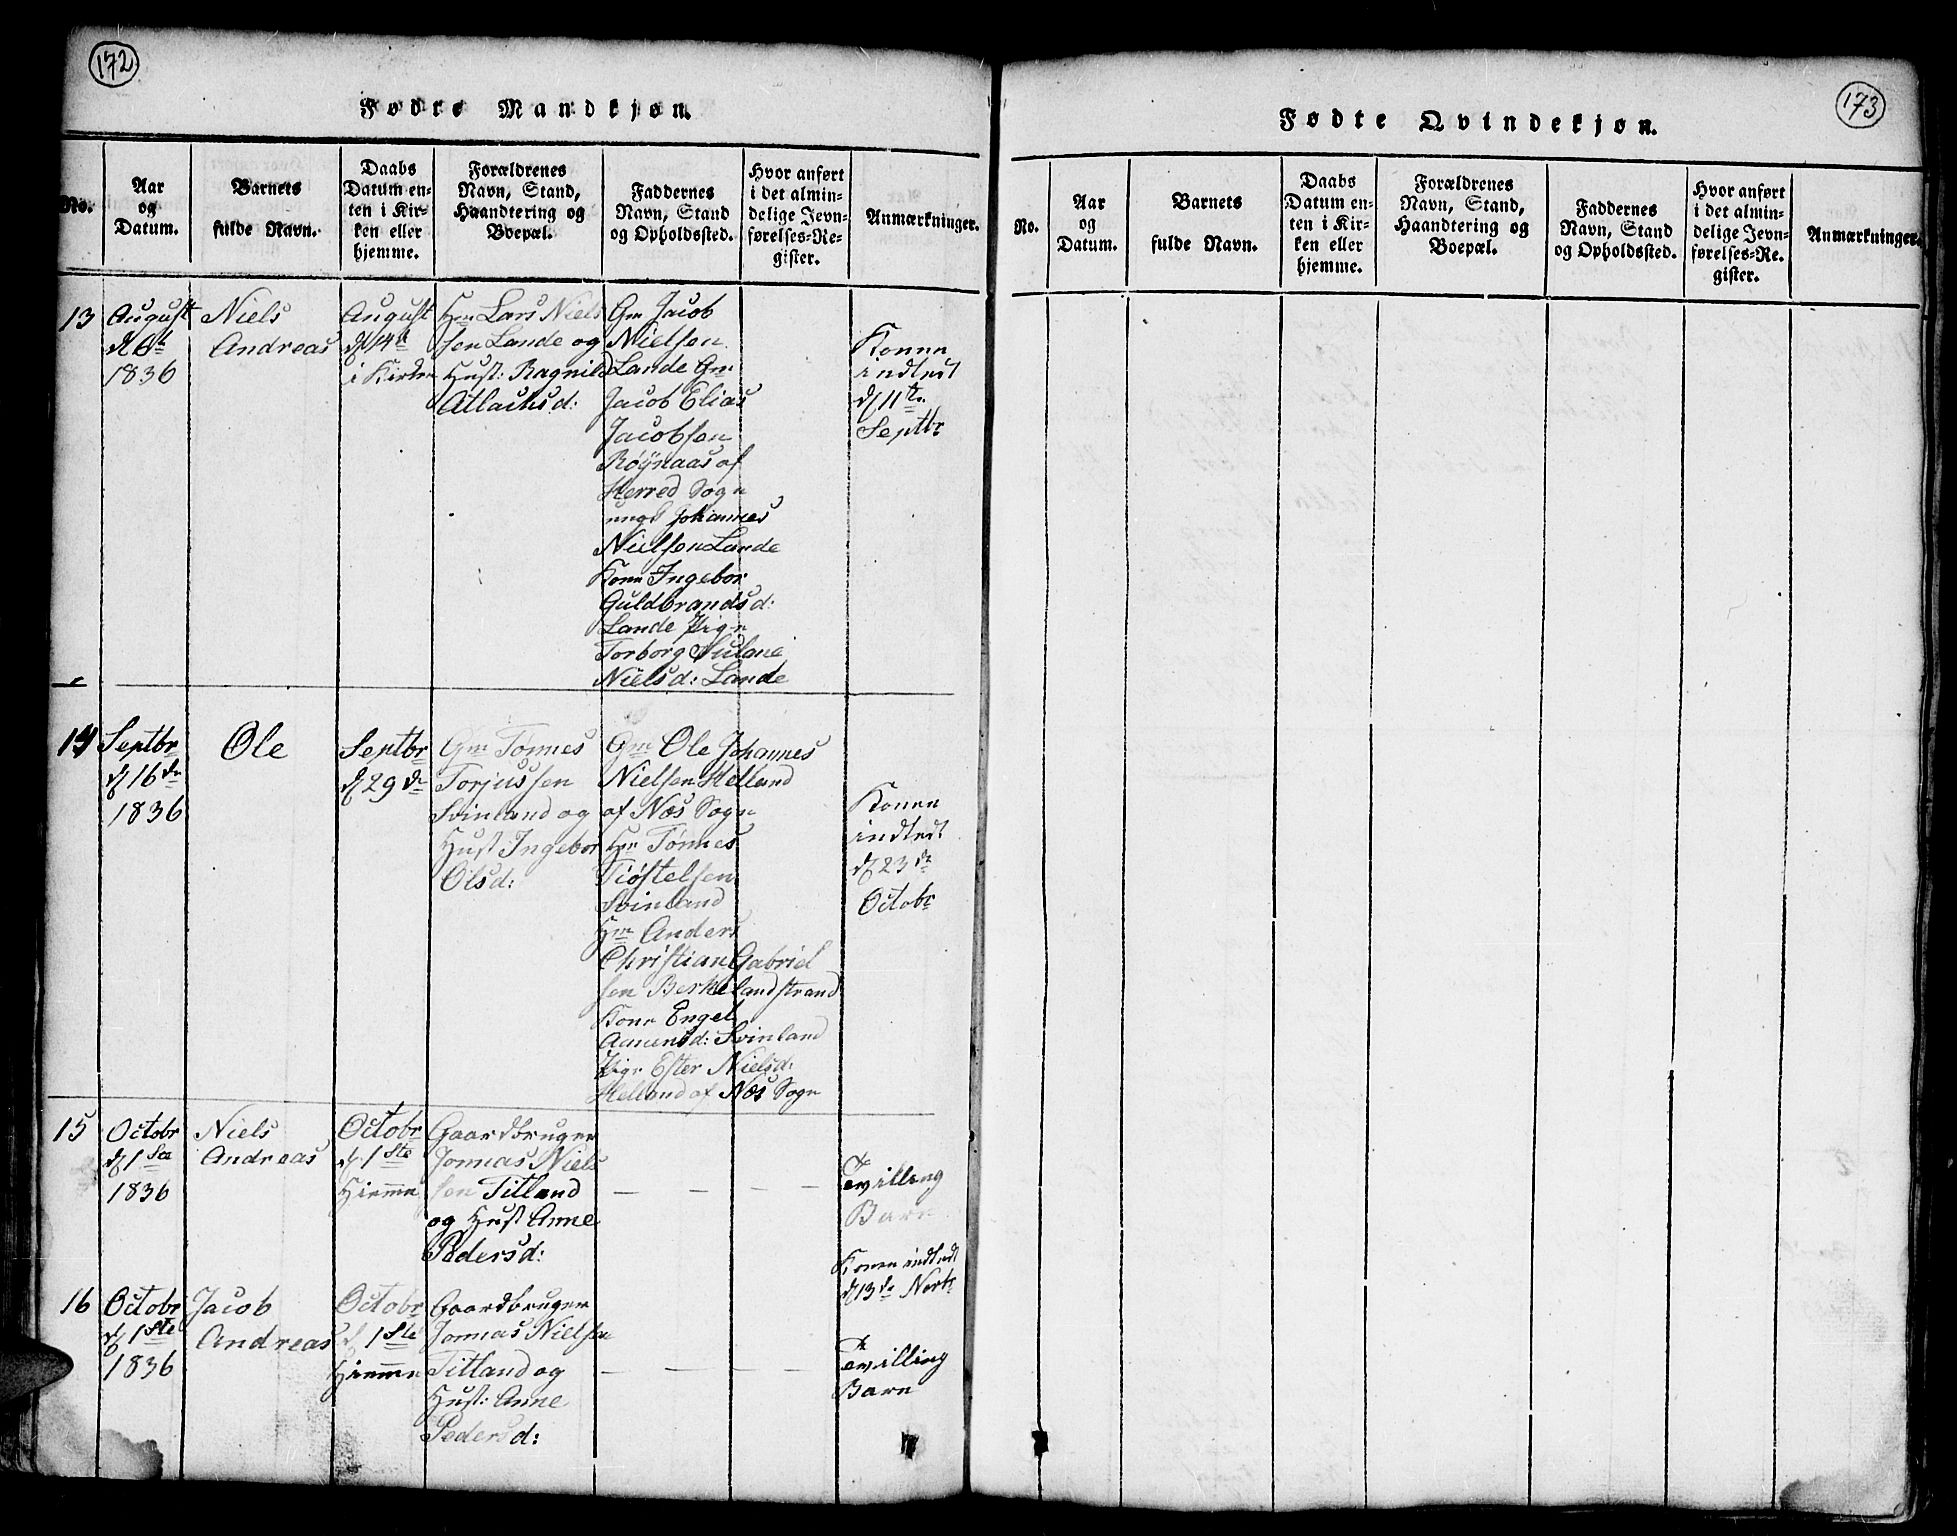 172
Fødte Mandkjøn.
No.
Aar
og
Datum.
Barnets
fulde Navn.
Daabs
Datum en-
ten i Kir-
ken eller
hjemme.
Forældrenes
Navn, Stand,
Haandtering og
Boepæl.
Faddernes
Navn, Stand
og Opholdssted.
Hvor anført
i det almin-
delige Jevn-
førelses-Re-
gister.
Anmærkninger.
13
August
d 6t
1836
Niels
Andreas
August
d 14t
i Kirken
Hm Lars Niels
sen Lande og
Hust: Ragnild
Atlaksd:
Gm Jacob
Nielsen
Lande Gm
Jacob Elias
Jacobsen
Røÿnaas af
Herred Sogn
ungk Johannes
Nielsen Lande
Kone Ingebor
Guldbrandsd:
Lande Pige
Torborg
Nielsd: Lande
Konen
indledt
d 11te
Septbr
14
Septbr
d 16de
1836
Ole
Septbr
d 29de
Gm Tønnes
Torjussen
Svinland og
Hust Ingebor
Olsd:
Gm Ole Johannes
Nielsen Helland
af Næs Sogn
Hm Tønnes
Tiøstelsen
Svinland
Hm Anders
Christian Gabriel
sen Berkelandstrand
Kone Engel
Aamensd: Svinland
Pige Ester Nielsd:
Helland af Næs Sogn
Konen
indledt
d 23de
Octobr
15
Octobr
d 1ste
1836
Niels
Andreas
Octobr
d 1ste
Hiemme
Gaardbruger
Jonnas Niels
sen Titland
og Hust Anne
Pedersd:
Tevilling
Barn
Konen indledt
d 13de Novbr
16
Octobr
d 1ste
1836
Jacob
Andreas
Octobr
d 1ste
Hiemme
Gaardbruger
Jonnas Nielsen
Titland og
Hust: Anne
Pedersd:
Tevilling
Barn
173
Fødte Qvindekjøn.
No.
Aar
og
Datum.
Barnets
fulde Navn.
Daabs
Datum en-
ten i Kir-
ken eller
hjemme.
Forældrenes
Navn, Stand,
Haandtering og
Boepæl.
Faddernes
Navn, Stand
og Opholdssted.
Hvor anført
i det almin-
delige Jevn-
førelses-Re-
gister.
Anmærkninger.